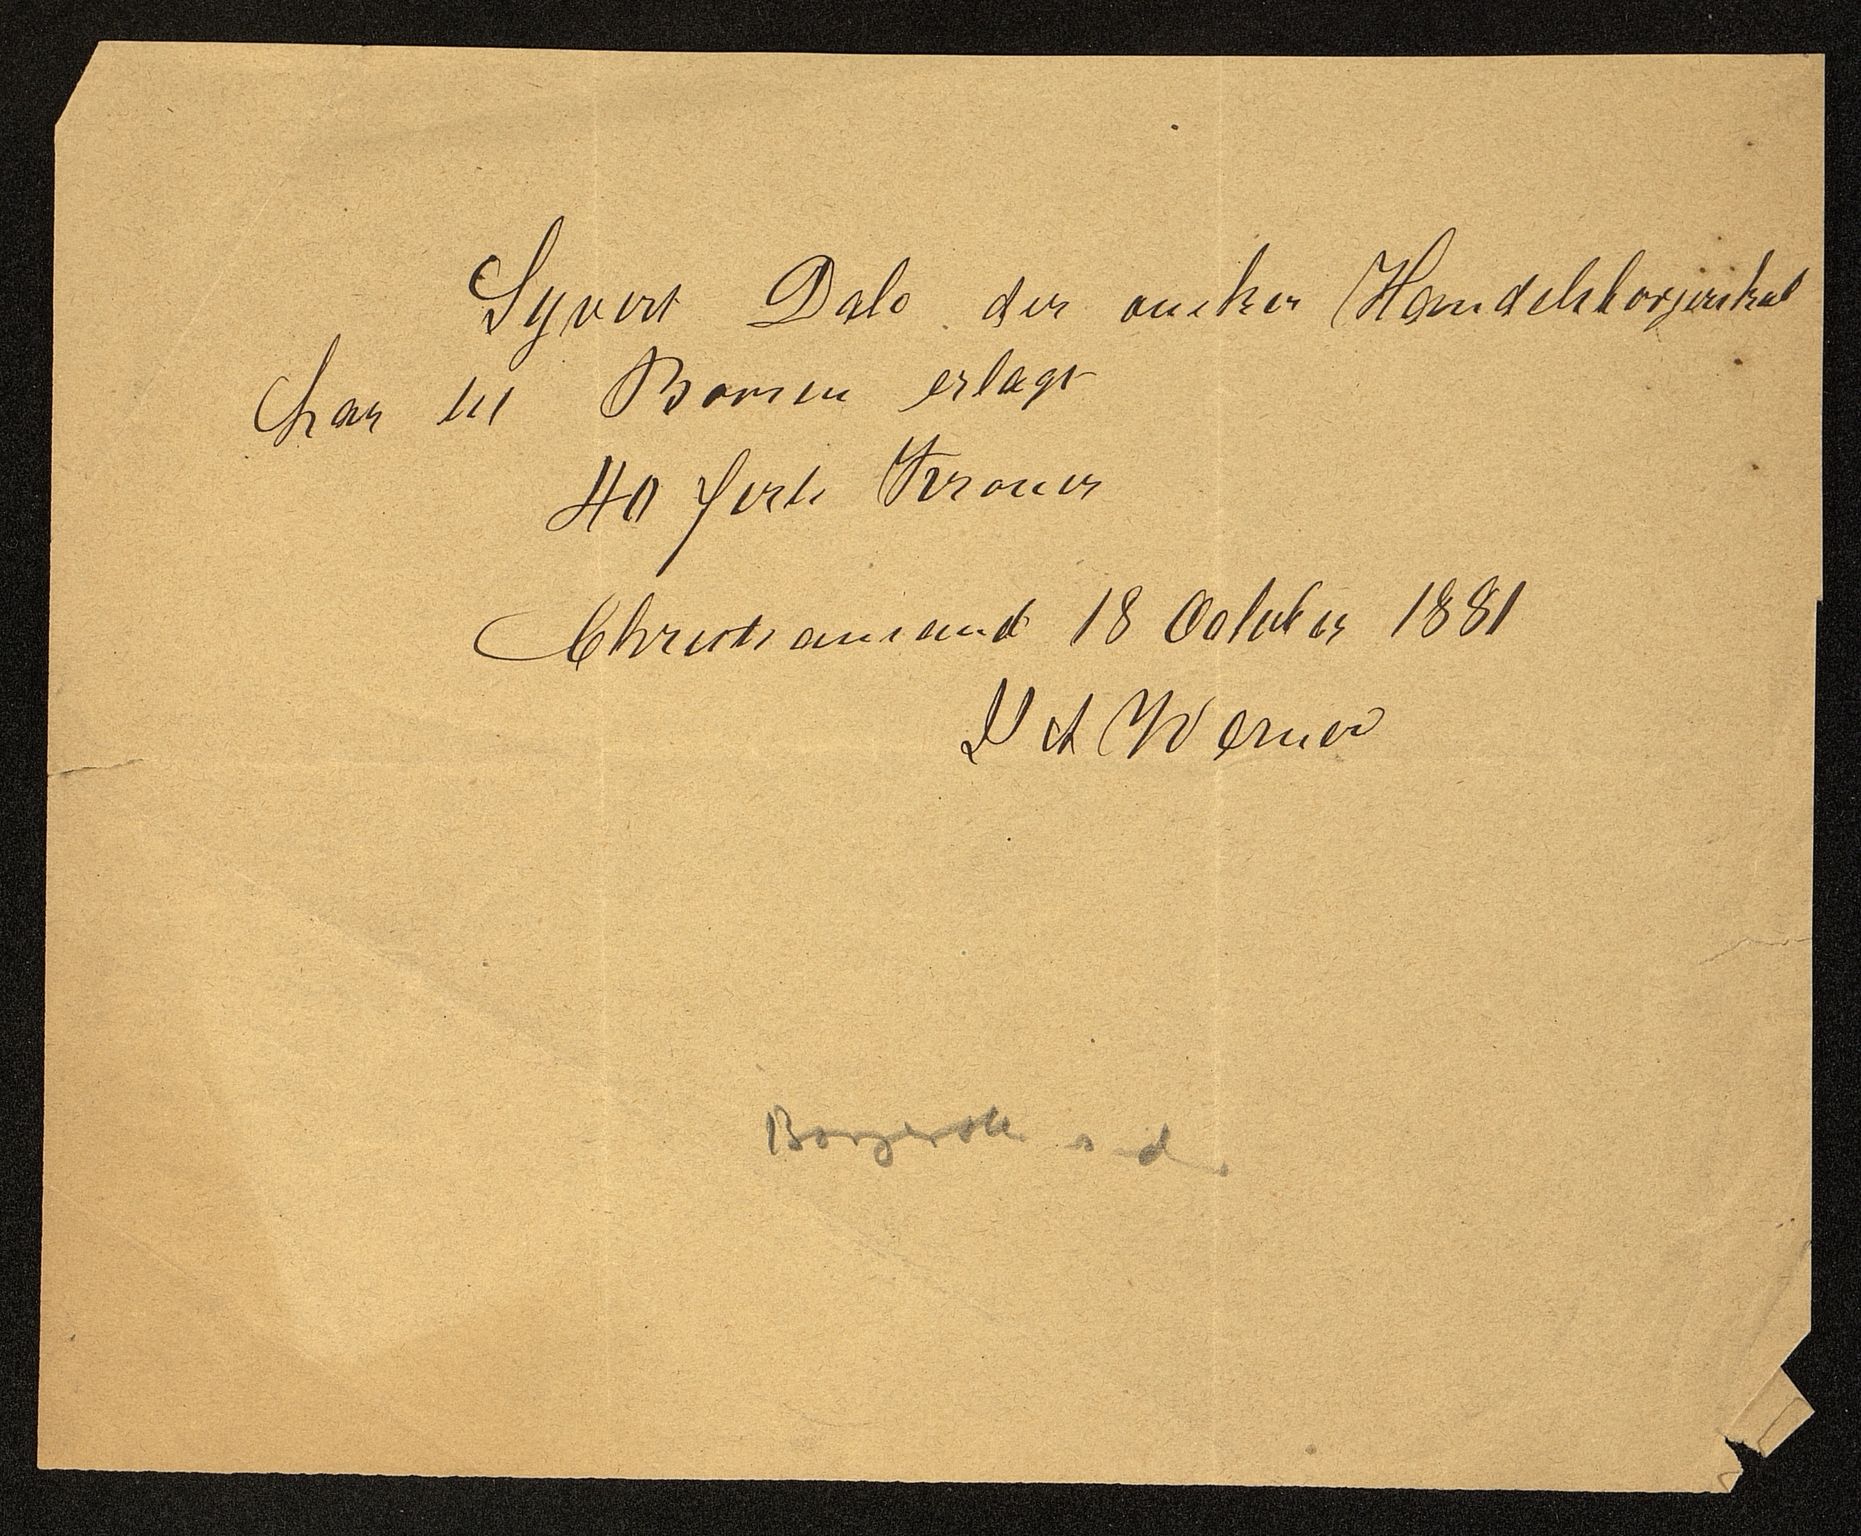 Syvert Dale der onsker Handelsborgerskab
har til Borsen erlagt
40 forti Kroner
Christiansand 18 October 1881
A Werner
Borgersk